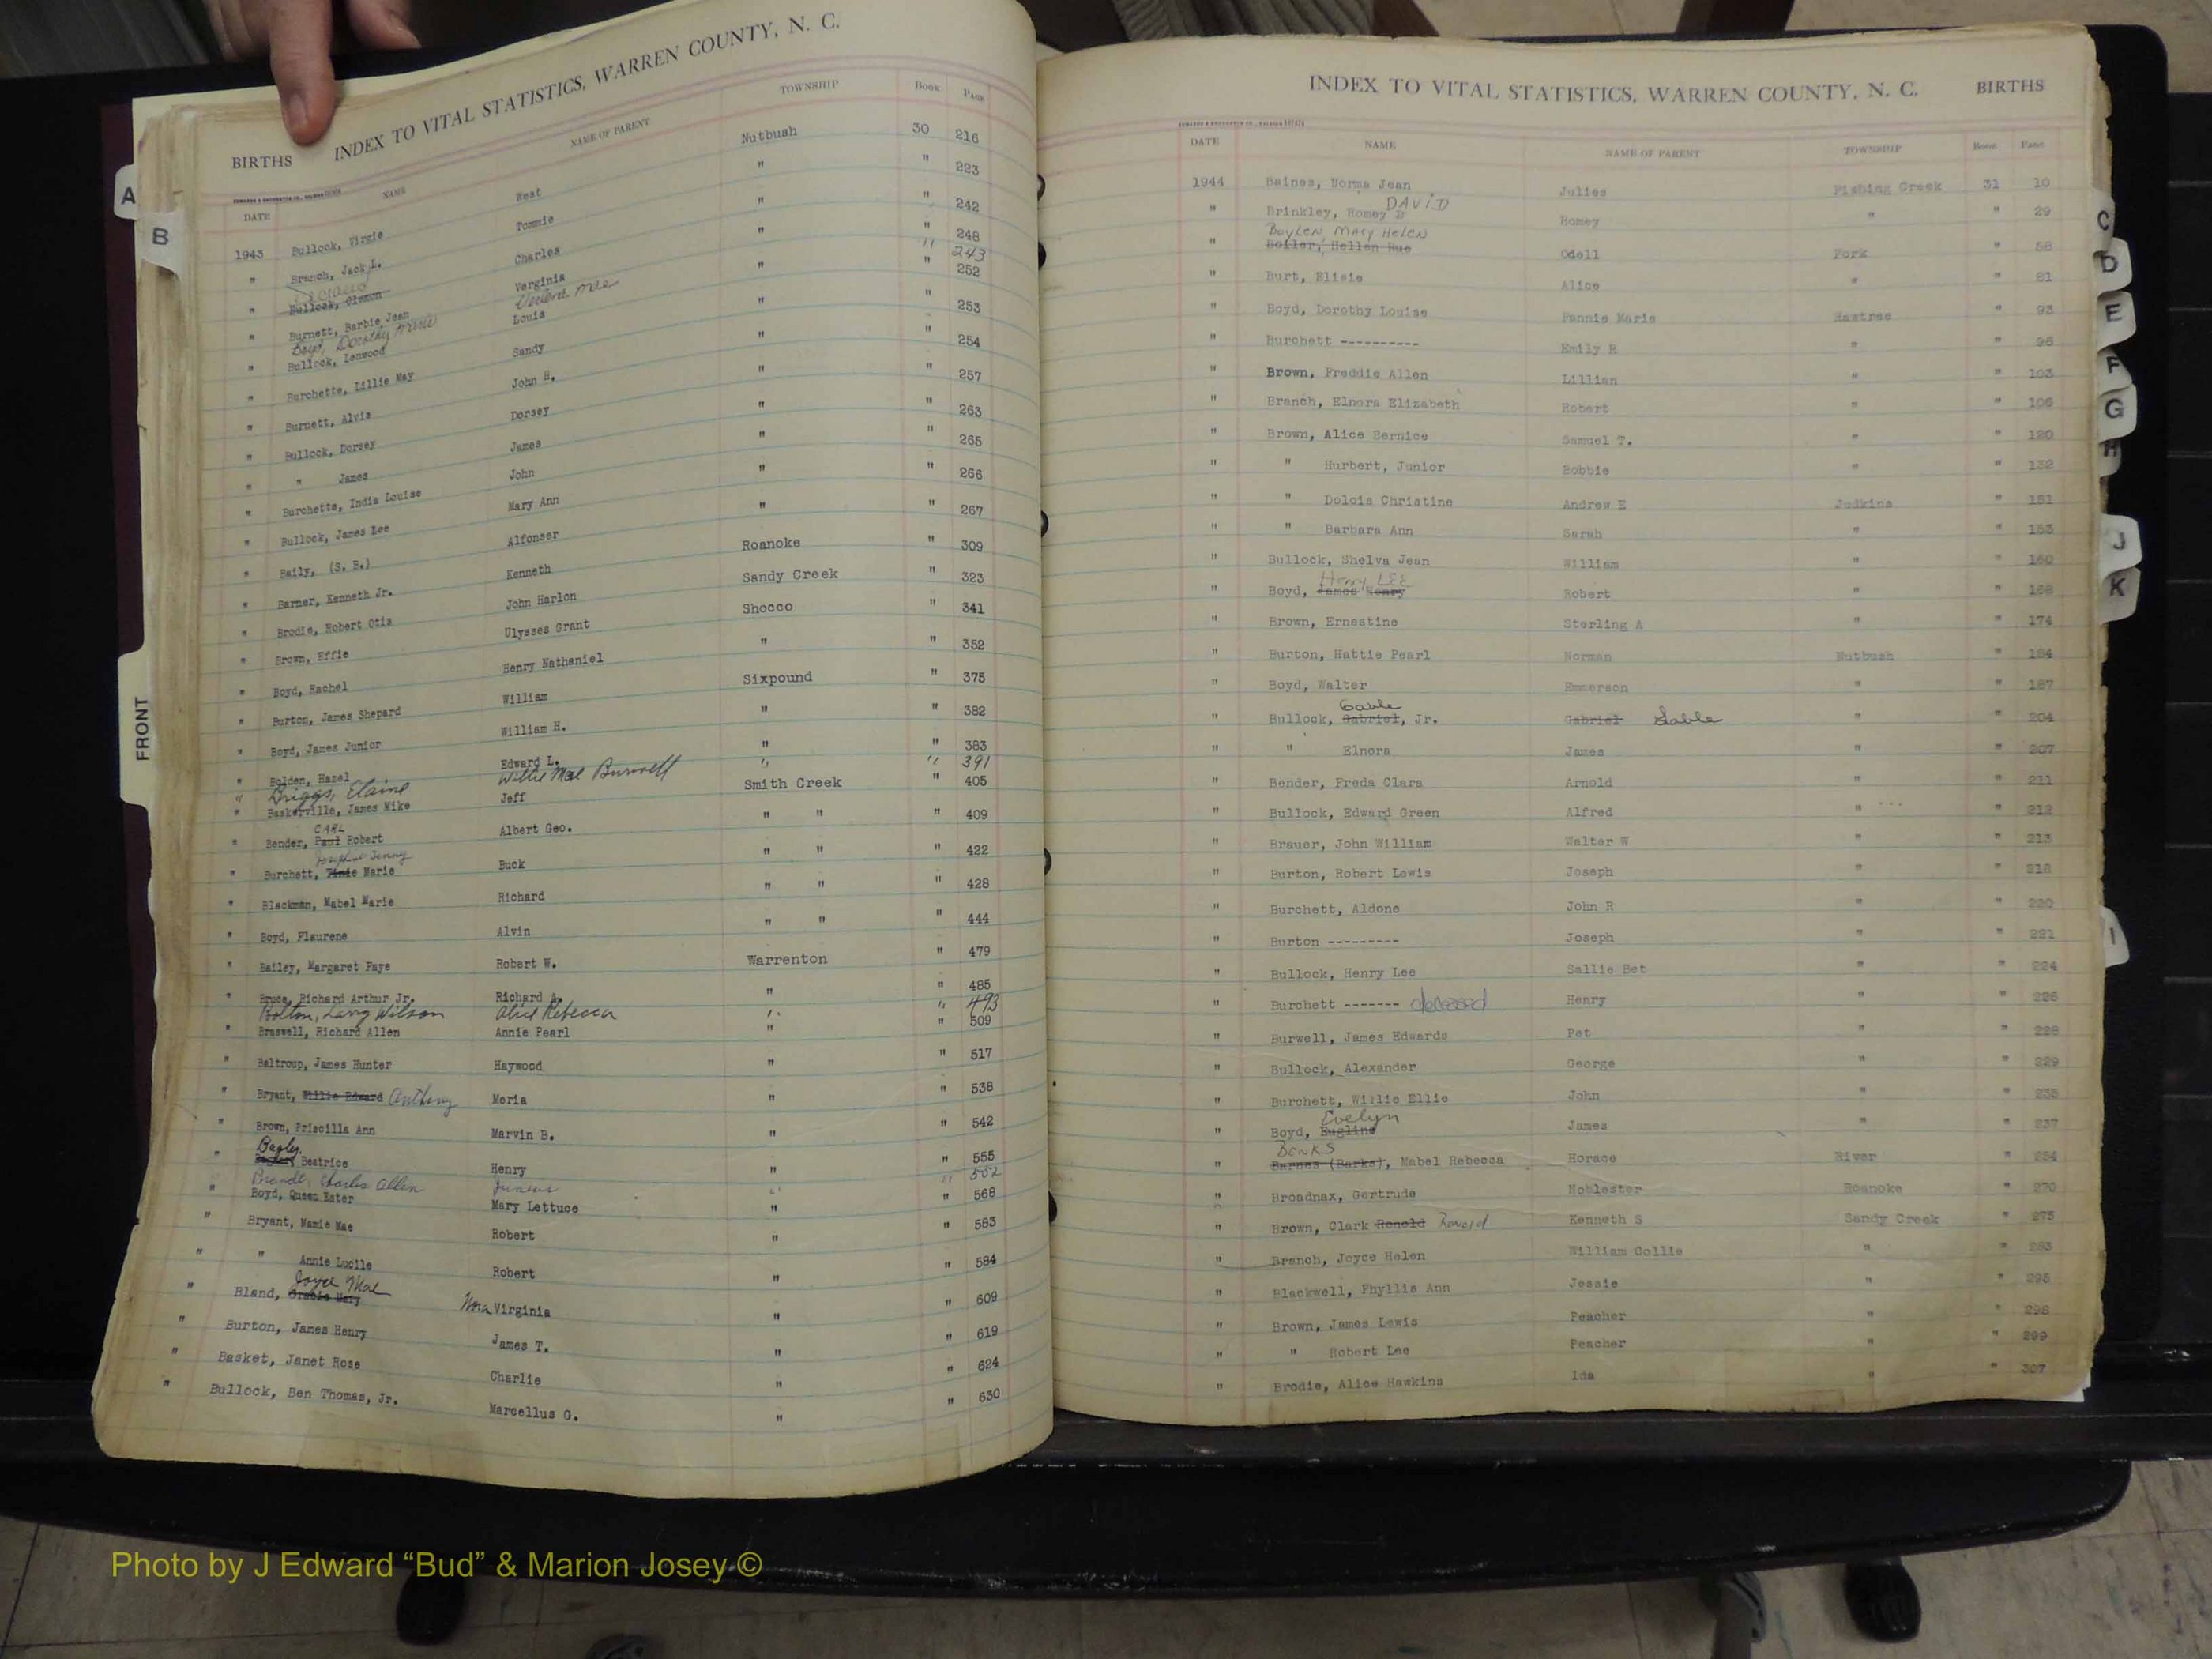 INDEX TO VITAL STATISTICS, WARREN COUNTY, N. C.
BIRTHS
DATE NAME NAME OF PARENT TOWNSHIP BOOK PAGE
1943 Bullock, Virgie West Nutbush 30 216
" Branch, Jack L. Tommie " " 223
" Bullock, Clemon Charles " " 242
" Burnett, Barbie Jean Verginia " " 248
Boyd, Dorothy " 243
" Bullock, Lenwood Louis " " 252
" Burchette, Lillie May Sandy " " 253
" Burnett, Alvis John H. " " 254
" Bullock, Dorsey Dorsey " " 257
" " James James " " 263
" Burchette, India Louise John " " 265
" Bullock, James Lee Mary Ann " " 266
" Baily, (S. B.) Alfonser " " 267
" Barner, Kenneth Jr. Kenneth Roanoke " 309
" Brodie, Robert Otis John Harlon Sandy Creek " 323
" Brown, Effie Ulysses Grant Shocco " 341
" Boyd, Rachel Henry Nathaniel " " 352
" Burton, James Shepard William Sixpound " 375
" Boyd, James Junior William H. " " 382
" Bolden, Hazel Edward L. " " 383
" Briggs, Elaine Willie Mae Burwell " " 391
" Baskerville, James Mike Jeff Smith Creek " 405
CARL
" Bender, Paul Robert Albert Geo. " " " 409
" Burchett, Marie Buck " " " 422
" Blackman, Mabel Marie Richard " " " 428
" Boyd, Flaurene Alvin " " " 444
" Bailey, Margaret Faye Robert W. Warrenton " 479
" Bruce, Richard Arthur Jr. Richard A. " " 485
Bolton, Larry Wilson Alice Rebecca " " 493
" Braswell, Richard Allen Annie Pearl " " 509
" Baltroup, James Hunter Haywood " " 517
" Bryant, Willie Edward Anthony Meria " " 538
" Brown, Priscilla Ann Marvin B. " " 542
" Beatrice Henry " " 555
Charles Allen " " 552
" Boyd, Queen Ester Mary Lettuce " " 568
" Bryant, Mamie Mae Robert " " 583
" " Annie Lucile Robert " " 584
Joyce Mae
" Bland, Gracie Mary Nora Virginia " " 609
" Burton, James Henry James T. " " 619
" Basket, Janet Rose Charlie " " 624
" Bullock, Ben Thomas, Jr. Marcellus G. " " 630
INDEX TO VITAL STATISTICS, WARREN COUNTY, N. C. BIRTHS
DATE NAME NAME OF PARENT TOWNSHIP Book Page
1944 Baines, Norma Jean Julies Fishing Creek 31 10
DAVID
" Brinkley, Romey D Romey " " 29
Boylen, Mary Helen
" Boiler, Hellen Rue Odell Fork " 58
" Burt, Elisie Alice " " 81
" Boyd, Dorothy Louise Fannie Marie Hawtree " 93
" Burchett ---------- Emily R " " 95
" Brown, Freddie Allen Lillian " " 103
" Branch, Elnora Elizabeth Robert " " 106
" Brown, Alice Bernice Samuel T. " " 120
" " Hurbert, Junior Bobbie " " 132
" " Dolois Christine Andrew E Judkins " 151
" " Barbara Ann Sarah " " 153
" Bullock, Shelva Jean William " " 160
Henry LEE
" Boyd, James Henry Robert " " 168
" Brown, Ernestine Sterling A " " 174
" Burton, Hattie Pearl Norman Nutbush " 184
" Boyd, Walter Emmerson " " 187
Gable
" Bullock, Gabriel, Jr. Gabriel Gable " " 204
" " Elnora James " " 207
" Bender, Freda Clara Arnold " " 211
" Bullock, Edward Green Alfred " " 212
" Brauer, John William Walter W " " 213
" Burton, Robert Lewis Joseph " " 218
" Burchett, Aldone John R " " 220
" Burton --------- Joseph " " 221
" Bullock, Henry Lee Sallie Bet " " 224
" Burchett ------- deceased Henry " " 226
" Burwell, James Edwards Pet " " 228
" Bullock, Alexander George " " 229
" Burchett, Willie Ellie John " " 235
Evelyn
" Boyd, Eugline James " " 237
Banks
" Barnes (Barks), Mabel Rebecca Horace River " 254
" Broadnax, Gertrude Noblester Roanoke " 270
" Brown, Clark Ronold Ronold Kenneth S Sandy Creek " 275
" Branch, Joyce Helen William Collie " " 283
" Blackwell, Phyllis Ann Jessie " " 295
" Brown, James Lewis Peacher " " 298
" " Robert Lee Peacher " " 299
" Brodie, Alice Hawkins Ida " " 307
A
B
FRONT
C
D
E
F
G
H
J
K
I
Photo by J Edward “Bud” & Marion Josey ©